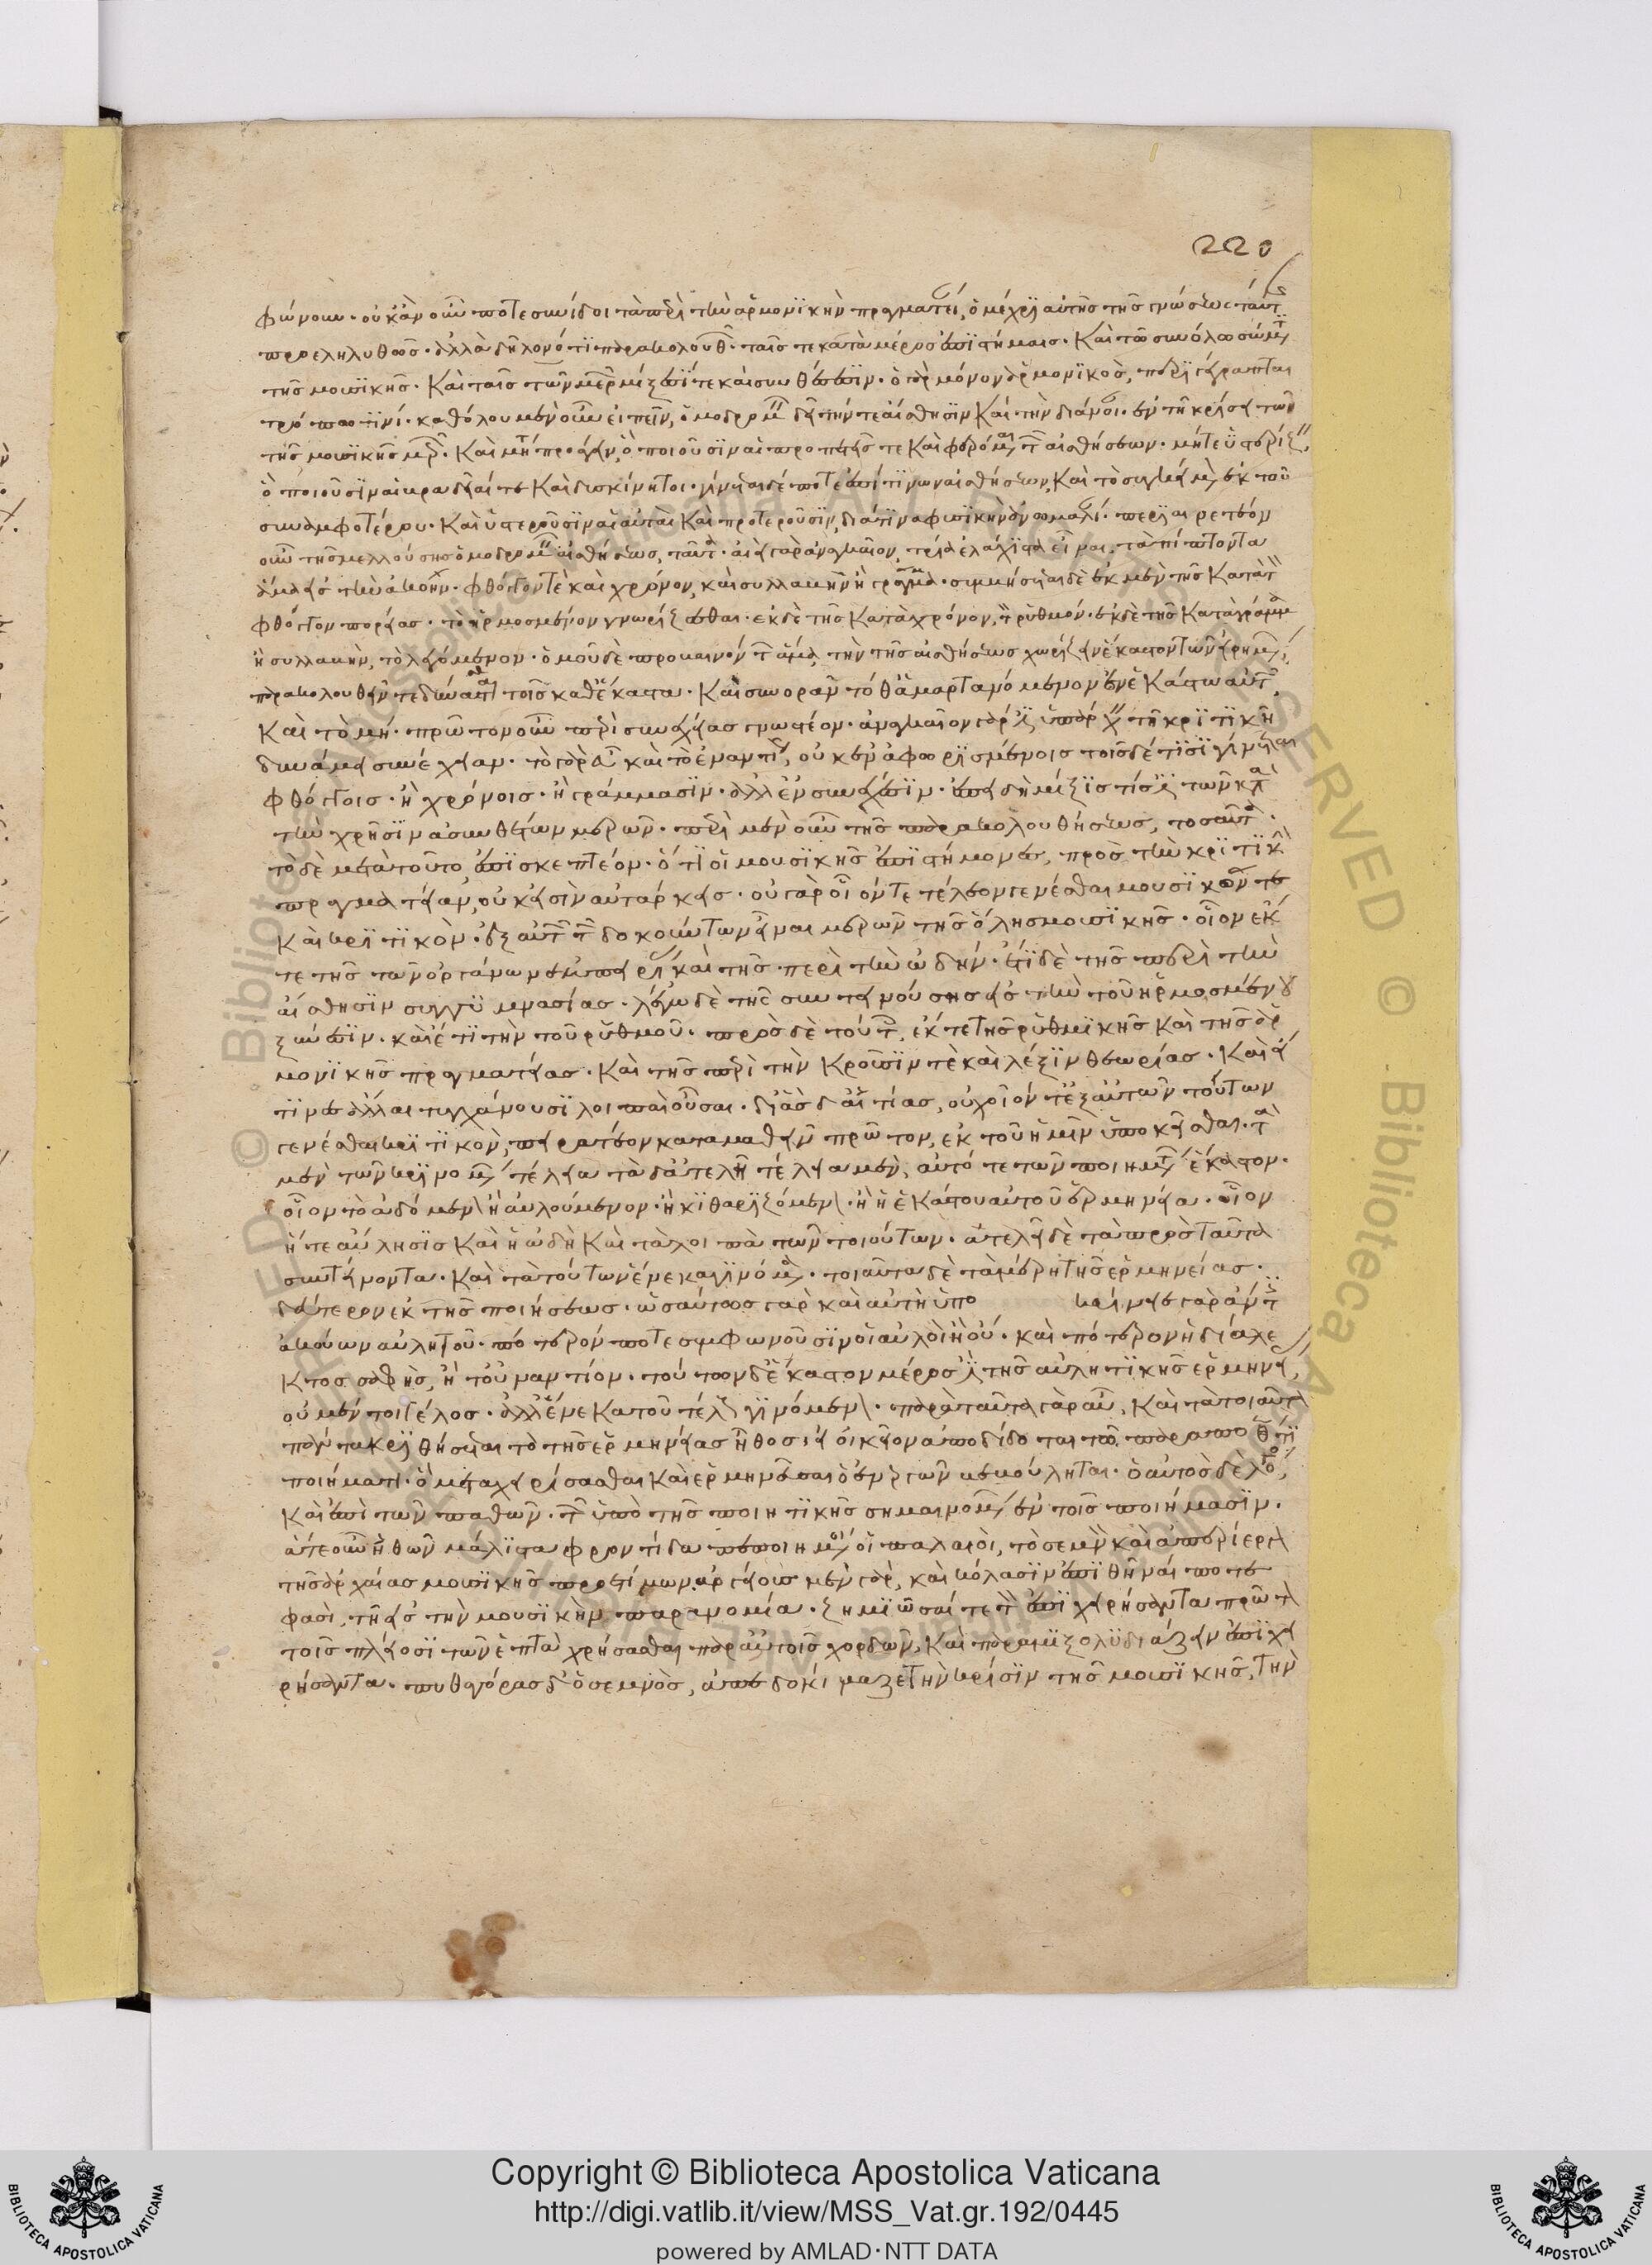 220
φώνων· οὐκ ἂν οὖν ποτε συνίδοι τὰ περὶ τὴν ἁρμονικὴν πραγματεί, ὁ μέχρι αὐτῆς τῆς γνώσεως ταύτ
προεληλυθώς· ἀλλὰ δηλονότι παρακολουθ· ταῖς τε κατὰ μέρος ἐπιστήμαις· καὶ τῶ συνόλω σώματ
τῆς μουσικῆς· καὶ ταῖς τῶν μερ μίξεσί τε καὶ συνθέσεσιν· ὁ γὰρ μόνον ἁρμονικὸς, περιγέγραπται
τρόπω τινί· καθόλου μὲν οὖν εἰπεῖν, ὁμοδρομ δεῖ τήν τε αἴσθησιν καὶ τὴν διάνοι· ἐν τῆ κρίσει τῶν
τῆς μουσικῆς μερ· καὶ μήτε προάγειν, ὃ ποιοῦσιν αἱ προπετεῖς τε καὶ φερόμ τ αἰσθήσεων· μήτε ὑστερίζ,
ὃ ποιοῦσιν αἱ βραδεῖαί τε καὶ δυσκίνητοι· γίνεται δέ ποτε ἐπί τινων αἰσθήσεων, καὶ τὸ συγκείμ ἐκ τοῦ
συναμφοτέρου· καὶ ὑστεροῦσιν αἱ αὐταὶ καὶ προτεροῦσιν, διά τινα φυσικὴν ἀνωμαλί· περιαιρετέον
οὖν τῆς μελλούσης ὁμοδρομ αἰσθήσεως, ταῦτ· ἀεὶ γὰρ ἀναγκαῖον, τρία ἐλάχιστα εἶναι, τὰ πίπτοντα
ἅμα εἰς τὴν ἀκοήν· φθόγγον τὲ καὶ χρόνον, καὶ συλλαβὴν ἢ γράμμα· συμβήσεται δὲ ἐκ μὲν τῆς κατὰ τ
φθόγγον πορείας· τὸ ἡρμοσμένον γνωρίζεσθαι· ἐκ δὲ τῆς κατὰ χρόνον, τ ῥυθμόν· ἐκ δὲ τῆς κατὰ γράμμ
ἢ συλλαβὴν, τὸ λεγόμενον· ὁμοῦ δὲ προβαινόν τ ἅμα τὴν τῆς αἰσθήσεως
παρακολουθεῖν τε δύναται τοῖς καθ' ἕκαστα· καὶ συνορᾶν τό θ' ἁμαρτανόμενον ἐν ἑκάστω αὐτ,
καὶ τὸ μή· πρῶτον οὖν περὶ συνεχείας γνωστέον· ἀναγκαῖον γάρ ἐστι ὑπάρχ τῆ κριτικῆ
δυνάμει συνέχειαν· τὸ γὰρ εὖ καὶ τὸ ἐναντί, οὐκ ἐν ἀφωρισμένοις τοῖσδέ τισι γίνεται
φθόγγοις· ἢ χρόνοις· ἢ γράμμασιν· ἀλλ' ἐν συνεχέσιν· ἐπειδὴ μίξις τίς ἐστι τῶν κτ
τὴν χρῆσιν ἀσυνθέτων μερῶν· περὶ μὲν οὖν τῆς παρακολουθήσεως, τοσαῦτ·
τὸ δὲ μετὰ τοῦτο ἐπισκεπτέον· ὅτι οἱ μουσικῆς ἐπιστήμονες, πρὸς τὴν κριτικ
πραγματείαν, οὐκ εἰσὶν αὐτάρκεις· οὐ γὰρ οἷόν τε τέλεον γενέσθαι μουσικόν τε
καὶ κριτικὸν· ἐξ αὐτ τ δοκούντων εἶναι μερῶν τῆς ὅλης μουσικῆς· οἷον ἐκ
τε τῆς τῶν ὀργάνων ἐμπειρί καὶ τῆς περὶ τὴν ὠδὴν· ἔτι δὲ τῆς περὶ τὴν
αἴσθησιν συγγυμνασίας· λέγω δὲ τῆς συντεινούσης εἰς τὴν τοῦ ἡρμοσμένου
ξύνεσιν· καὶ ἔτι τὴν τοῦ ῥυθμοῦ· πρὸς δὲ τούτ, ἔκ τε τῆς ῥυθμικῆς καὶ τῆς ἁρ
μονικῆς πραγματείας· καὶ τῆς περὶ τὴν κροῦσίν τὲ καὶ λέξιν θεωρίας· καὶ εἴ
τινες ἄλλαι τυγχάνουσι λοιπαὶ οὖσαι· δι' ἃς δ' αἰτίας, οὐχ οἷόν τ' ἐξ αὐτῶν τούτων
γενέσθαι κριτικὸν, πειρατέον καταμαθεῖν πρῶτον, ἐκ τοῦ ἡμῖν ὑποκεῖσθαι· τ
μὲν τῶν κρινομ τέλεια τὰ δ' ἀτελῆ τέλεια μὲν, αὐτό τε τῶν ποιημτ ἕκαστον·
οἷον τὸ ἀδόμεν ἢ αὐλούμενον· ἢ κιθαριζόμεν· ἢ ἡ ἑκάστου αὐτοῦ ἑρμηνεία· οἷον
ἥ τε αὔλησις καὶ ἡ ὠδὴ καὶ τὰ λοιπὰ τῶν τοιούτων· ἀτελῆ δὲ τὰ πρὸς ταῦτα
συντείνοντα· καὶ τὰ τούτων ἕνεκα γινόμ· τοιαῦτα δὲ τὰ μέρη τῆς ἑρμηνείας·
δεύτερον ἐκ τῆς ποιήσεως· ὡσαύτως γὰρ καὶ αὐτὴ ὑπο κρίνειε γὰρ ἄν τ
ἀκούων αὐλητοῦ· πότερόν ποτε συμφωνοῦσιν οἱ αὐλοὶ ἢ οὔ· καὶ πότερον ἡ διάλε
κτος σαφὴς, ἢ τοὐναντίον· τούτων δ' ἕκαστον μέρος ἐστὶ τῆς αὐλητικῆς ἑρμηνεί,
οὐ μέντοι τέλος· ἀλλ' ἕνεκα τοῦ τέλ γινόμεν· παρὰ ταῦτα γὰρ αὖ, καὶ τὰ τοιαῦτ
πάντα κριθήσεται τὸ τῆς ἑρμηνείας ἦθος· εἰ οἰκεῖον ἀποδίδοται τῶ
ποιήματι· ὃ μεταχειρίσασθαι καὶ ἑρμηνεῦσαι ὁ ἐνεργῶν βεβούληται· ὁ αὐτὸς δὲ λό,
καὶ ἐπὶ τῶν παθῶν· τ ὑπὸ τῆς ποιητικῆς σημαινομ ἐν τοῖς ποιήμασιν·
ἅτε οὖν ἠθῶν μάλιστα φροντίδα πεποιημ οἱ παλαιοὶ, τὸ σεμνὸν καὶ ἀπερίεργ
τῆς ἀρχαίας μουσικῆς προετίμων. ἀργείους μὲν γὰρ, καὶ κόλασιν ἐπιθεῖναί ποτε
φασὶ, τῆ εἰς τὴν μουσικὴν παρανομία· ζημιῶσαί τε τ ἐπιχειρήσαντα πρῶτ
τοῖς πλείοσι τῶν ἑπτὰ χρήσασθαι παρ' αὐτοῖς χορδῶν, καὶ παραμιξολυδιάζειν ἐπιχει
ρήσαντα· πυθαγόρας δ' ὁ σεμνὸς, ἀπεδοκίμαζε τὴν κρίσιν τῆς μουσικῆς, τὴν
Copyright © Biblioteca Apostolica Vaticana
http://digi.vatlib.it/view/MSS_Vat.gr.192/0445
powered by AMLAD·NTT DATA
BIBLIOTECA APOSTOLICA VATICANA
BIBLIOTECA APOSTOLICA VATICANA